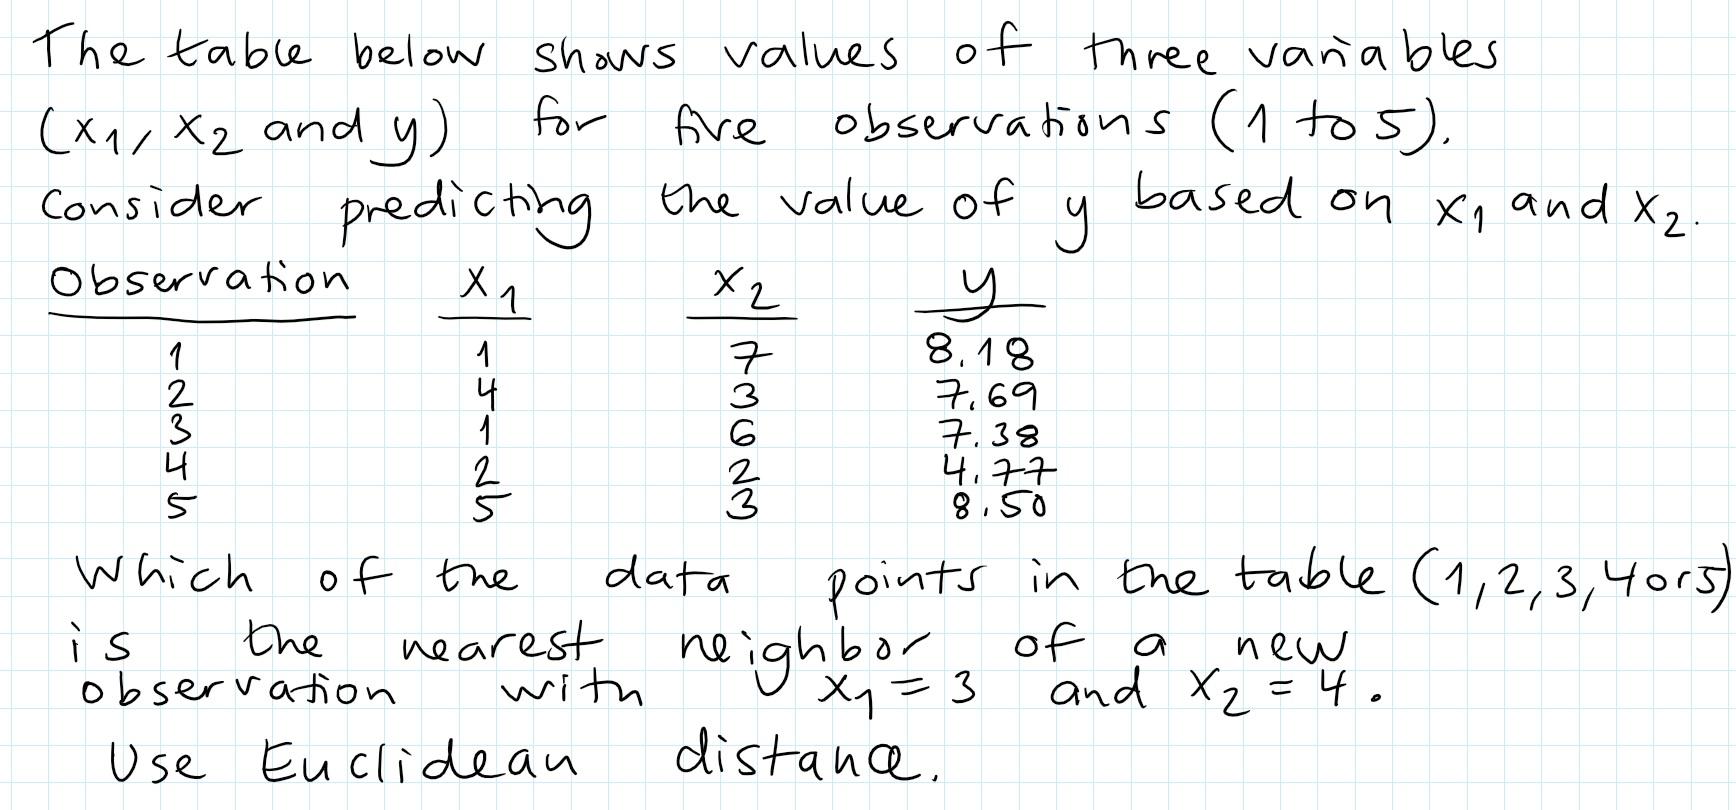 The table below shows values of three variables
(x₁, x₂ and y) for five observations (1 to 5).
Consider predicting the value of y based on x₁ and x₂.
Observation x₁ x₂ y
1 1 7 8.18
2 4 3 7.69
3 1 6 7.38
4 2 2 4.77
5 5 3 8.50
Which of the data points in the table (1,2,3,4 or 5)
is the nearest neighbor of a new
observation with x₁ = 3 and x₂ = 4.
Use Euclidean distance.